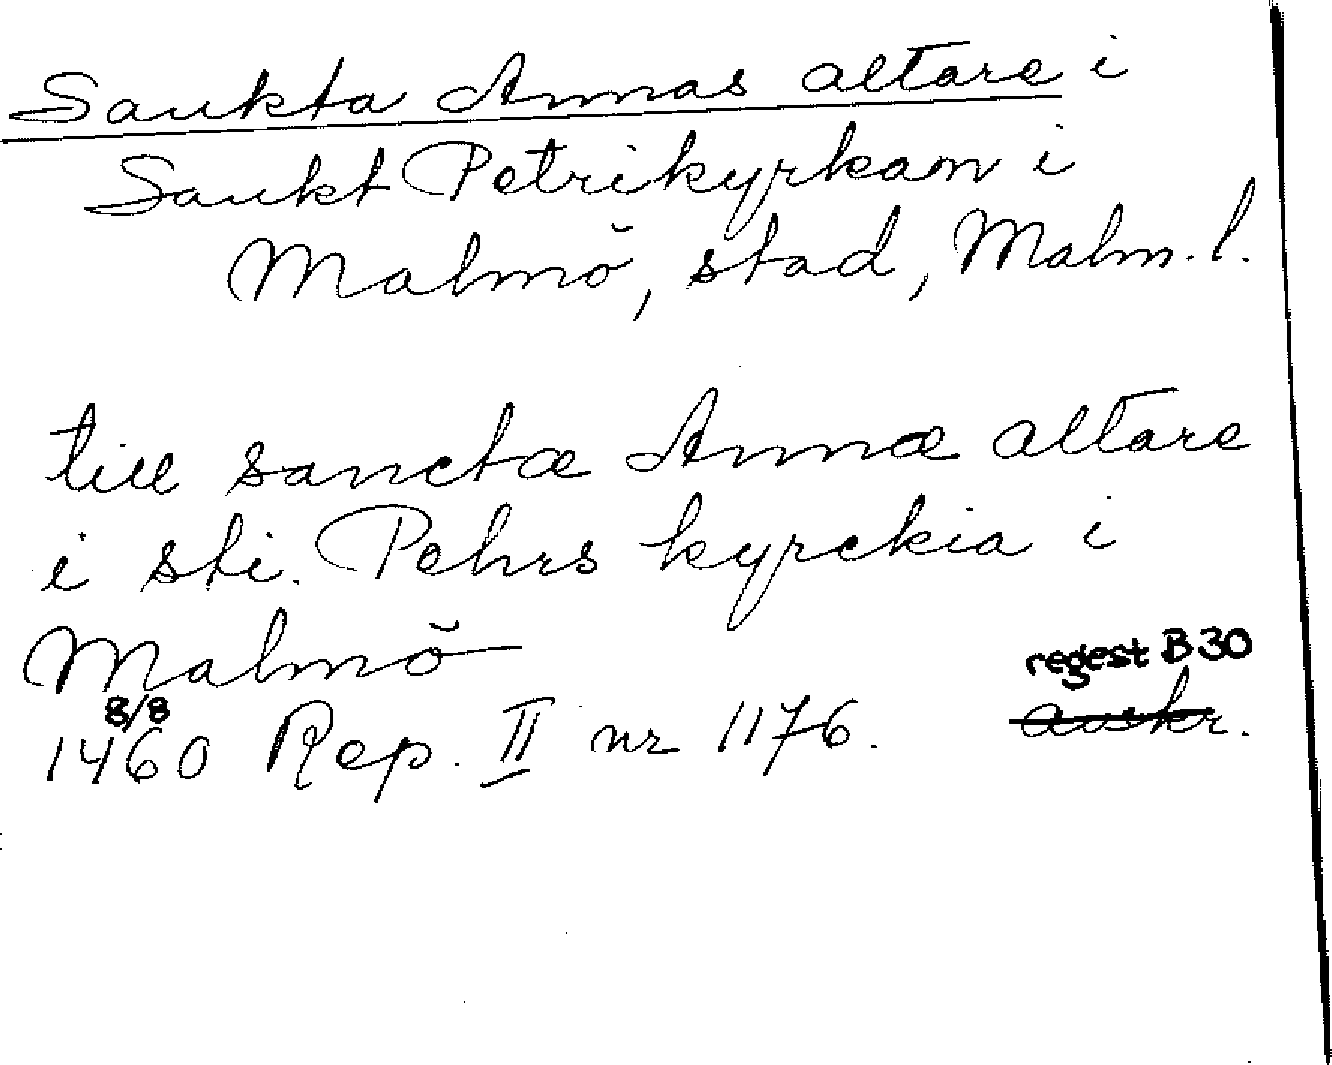 Sankta Annas altare i
Sankt Petrikyrkan i
Malmö, stad, Malm. l.
till sanctæ Annæ altare
i sti. Pehrs kyrckia i
Malmö
regest B 30
8/8
1460 Rep. II nr 1176. avskr.